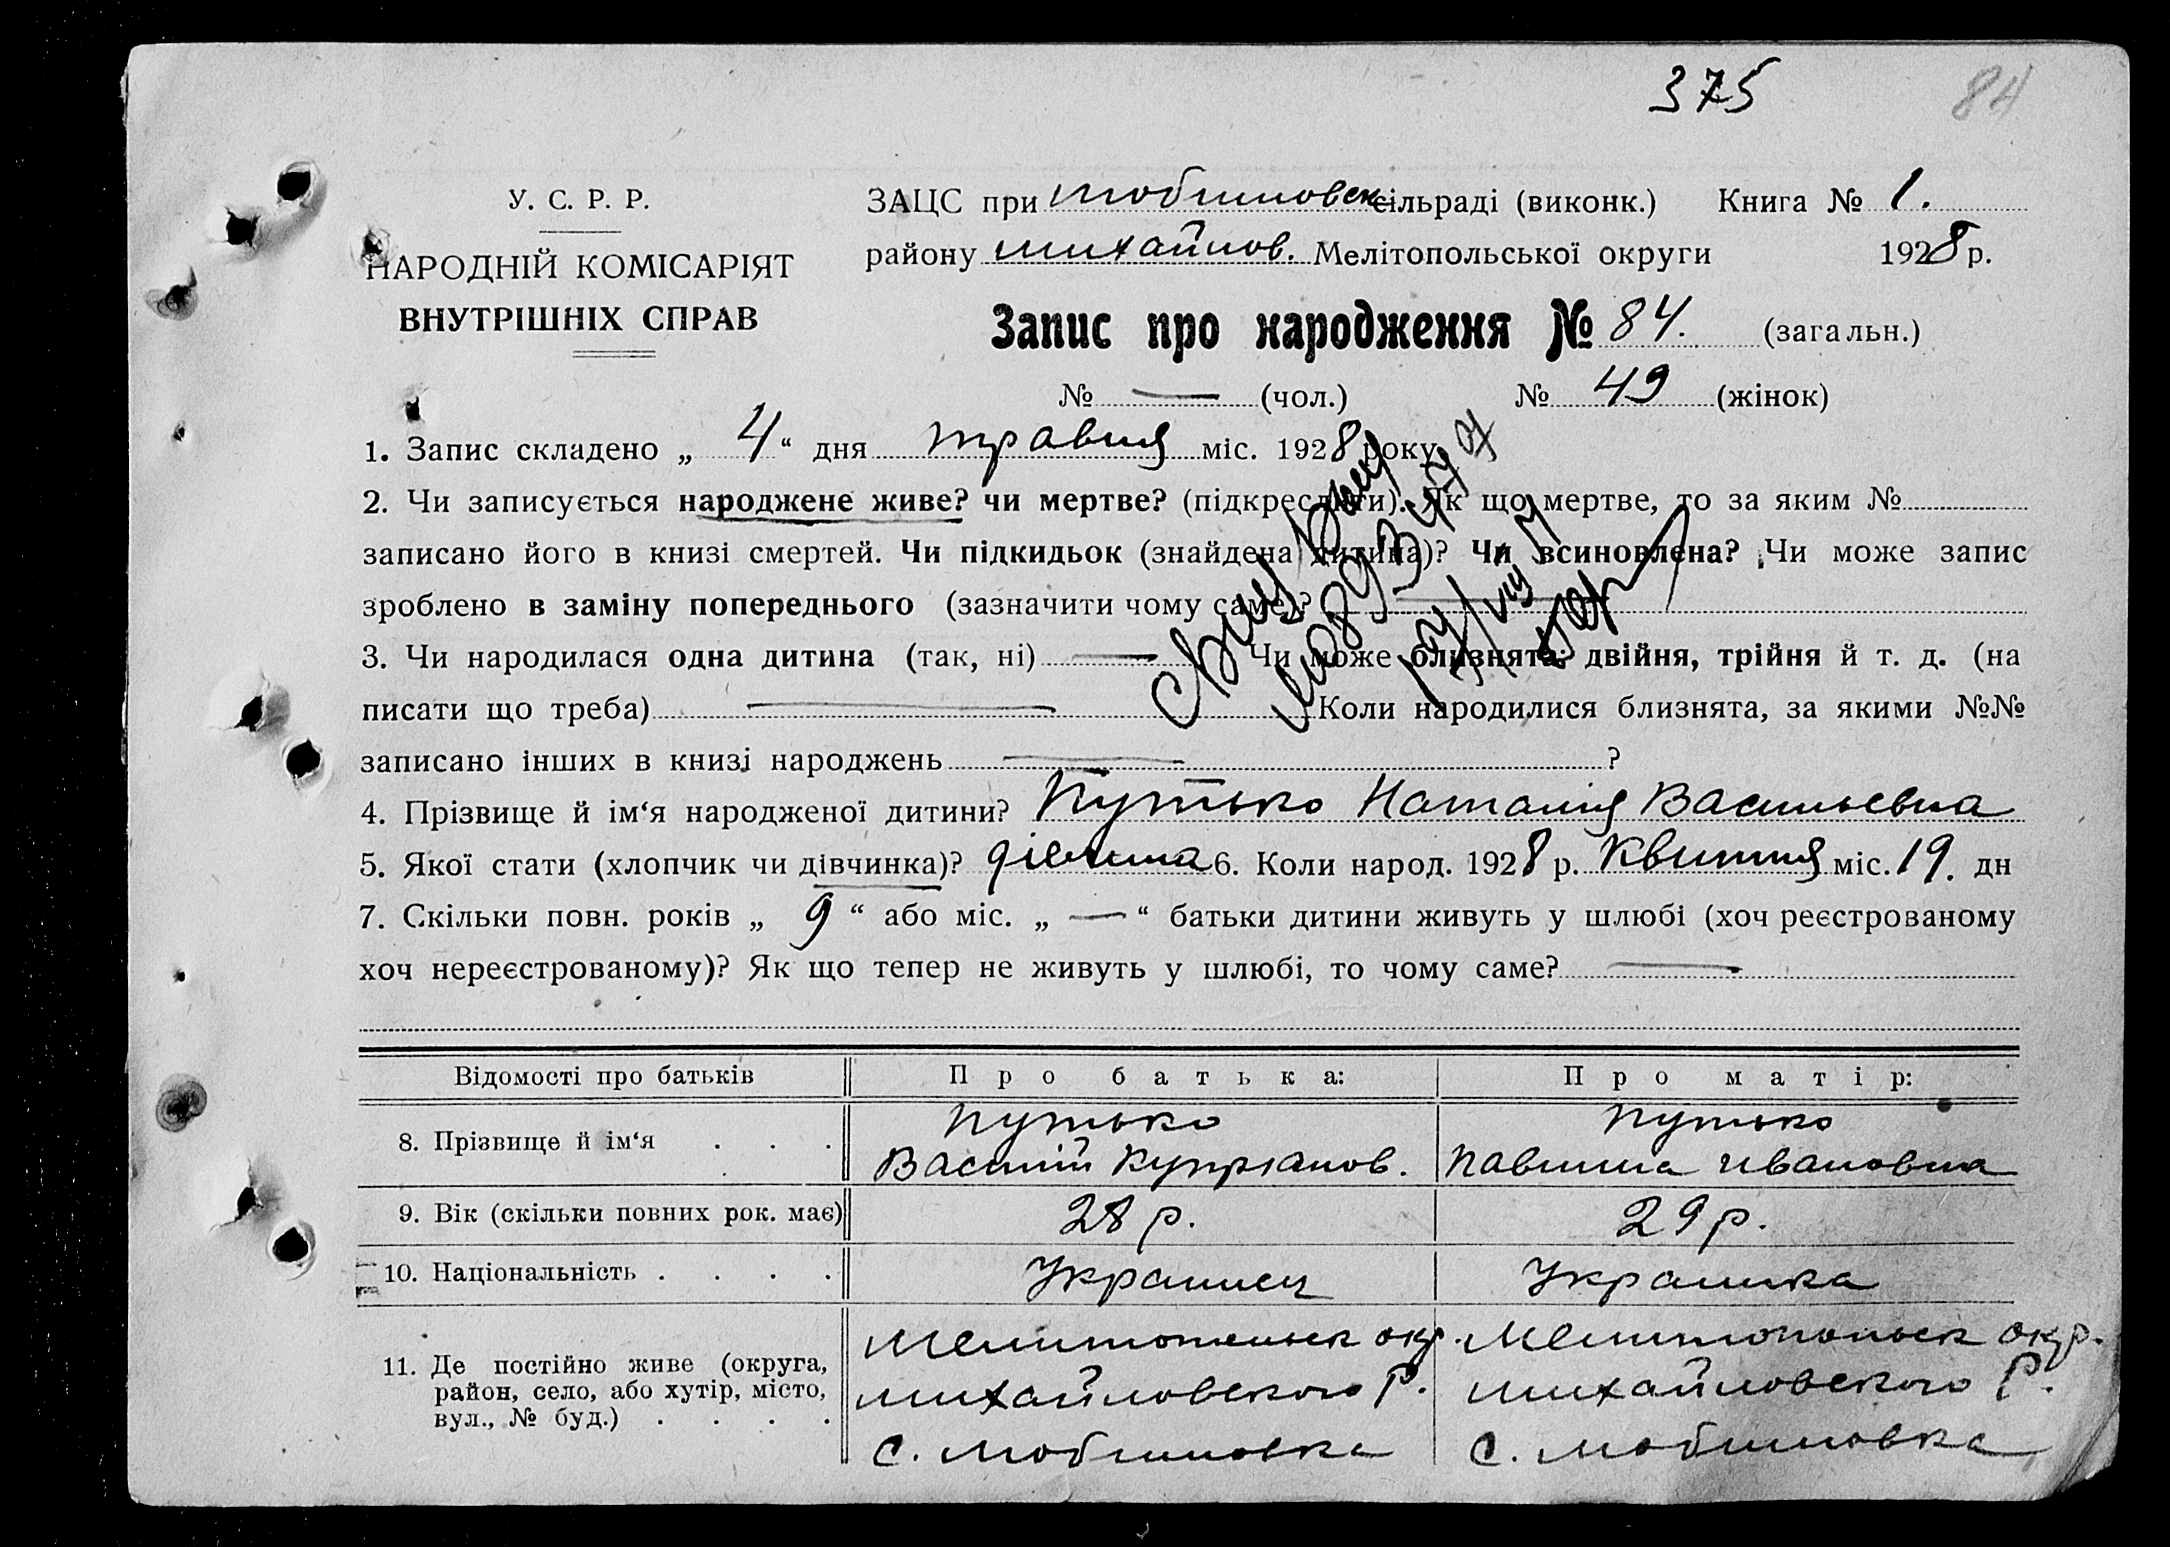 375 84
У. С. Р. Р.
НАРОДНІЙ КОМІСАРІЯТ
ВНУТРІШНІХ СПРАВ
ЗАЦС при Любимовск сільраді (виконк.) Книга № 1.
району Михайлов. Мелітопольської округи 1928 р.
Запис про народження № 84. (загальн.)
№ — (чол.) № 49 (жінок)
1. Запис складено „ 4 “ дня травня міс. 1928 року
2. Чи записується народжене живе? чи мертве? (підкреслити). Як що мертве, то за яким №
записано його в книзі смертей. Чи підкидьок (знайдена дитина)? Чи всиновлена? Чи може запис
зроблено в заміну попереднього (зазначити чому саме)? —
3. Чи народилася одна дитина (так, ні) — Чи може близнята: двійня, трійня й т. д. (на
писати що треба) — Коли народилися близнята, за якими №№
записано інших в книзі народжень — ?
4. Прізвище й ім‘я народженої дитини? Путько Наталія Васильевна
5. Якої стати (хлопчик чи дівчинка)? дівчина 6. Коли народ. 1928 р. Квитня міс. 19. дн
7. Скільки повн. років „ 9 “ або міс. „ — “ батьки дитини живуть у шлюбі (хоч реєстрованому
хоч нереєстрованому)? Як що тепер не живуть у шлюбі, то чому саме? —
Відомості про батьків Про батька: Про матір:
8. Прізвище й ім‘я . . . Путько Василій Купріанов. Путько Павлина Ивановна
9. Вік (скільки повних рок. має) 28 р. 29 р.
10. Національність . . . . Украинец Украинка
11. Де постійно живе (округа,
район, село, або хутір, місто,
вул., № буд.) . . . .
Мелитопольск окр.
Михайловского Р.
с. Любимовка
Мелитопольск окр.
Михайловского Р.
с. Любимовка